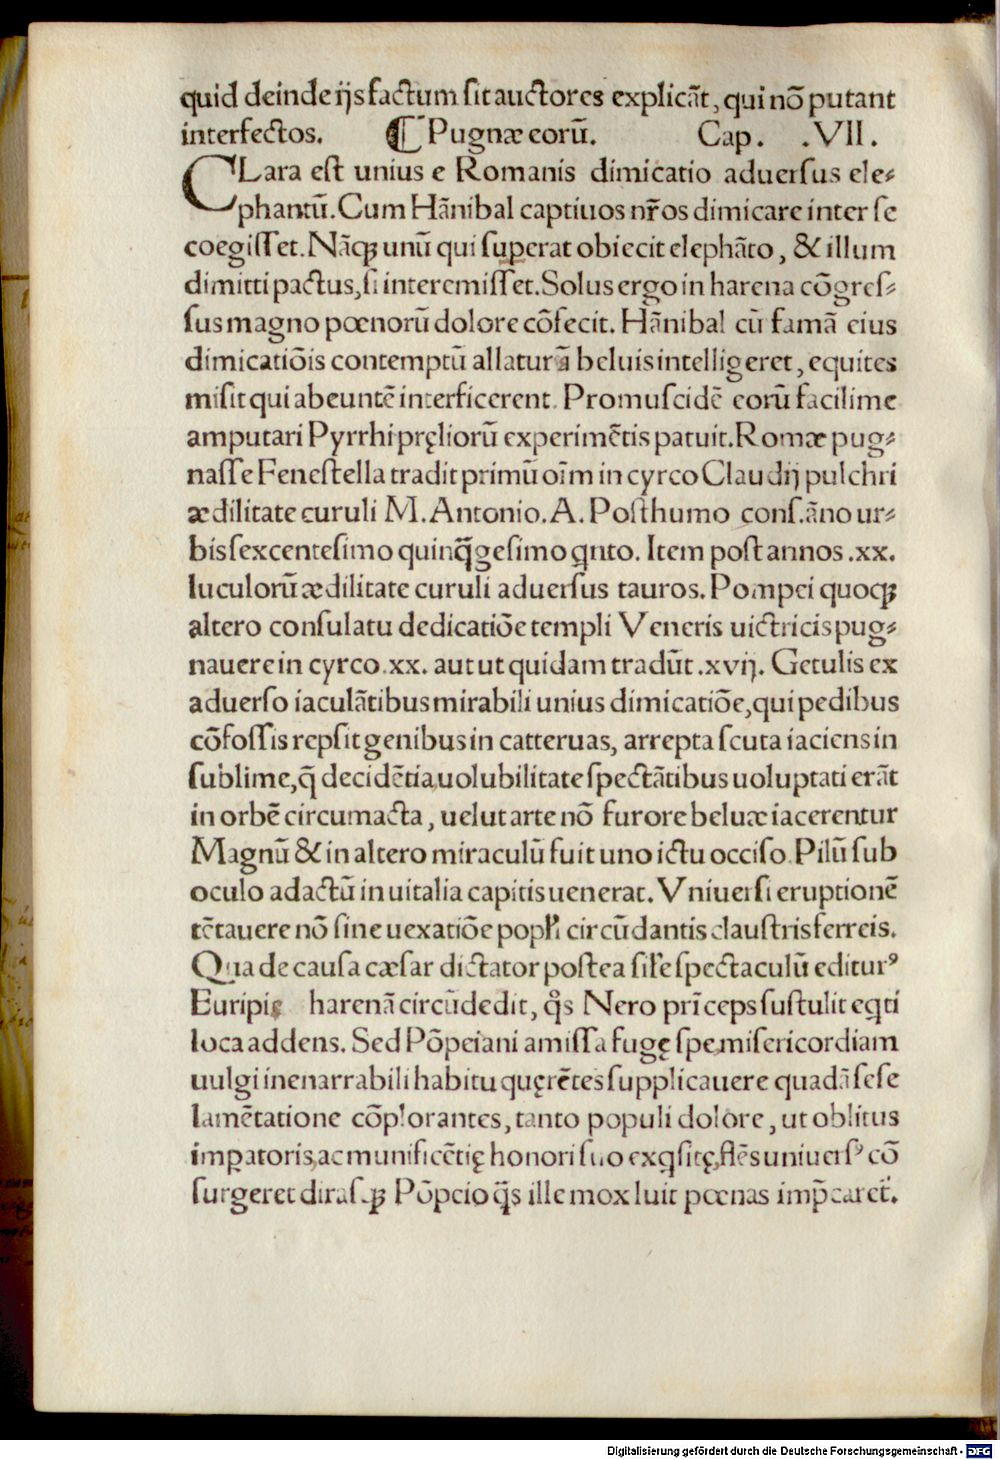 quid deinde ijs factum sit auctores explicāt, qui nō putant
interfectos. ¶ Pugnæ eorū. Cap. .VII.
CLara est unius e Romanis dimicatio aduersus ele-
phantū. Cum Hānibal captiuos nr̄os dimicare inter se
coegisset. Nāqꝫ unū qui superat obiecit elephāto, & illum
dimitti pactus, si interemisset. Solus ergo in harena cōgres-
sus magno pœnorū dolore cōfecit. Hānibal cū famā eius
dimicatiōis contemptū allaturā beluis intelligeret, equites
misit qui abeuntē interficerent. Promuscidē eorū facilime
amputari Pyrrhi pręliorū experimētis patuit. Romæ pug-
nasse Fenestella tradit primū oīm in cyrco Claudij pulchri
ædilitate curuli M. Antonio. A. Posthumo cons. āno ur-
bis sexcentesimo quinq̄gesimo qnto. Item post annos .xx.
luculorū ædilitate curuli aduersus tauros. Pompei quoqꝫ
altero consulatu dedicatiōe templi Veneris uictricis pug-
nauere in cyrco .xx. aut ut quidam tradūt .xvij. Getulis ex
aduerso iaculātibus mirabili unius dimicatiōe, qui pedibus
cōfossis repsit genibus in catteruas, arrepta scuta iaciens in
sublime, q̄ decidētia uolubilitate spectātibus uoluptati erāt
in orbē circumacta, uelut arte nō furore beluæ iacerentur
Magnū & in altero miraculū fuit uno ictu occiso. Pilū sub
oculo adactū in uitalia capitis uenerat. Vniuersi eruptionē
tētauere nō sine uexatiōe popl'i circūdantis claustris ferreis.
Qua de causa cæsar dictator postea sil'e spectaculū editurꝰ
Euripis harenā circūdedit, qͦs Nero prīceps sustulit eqti
loca addens. Sed Pōpeiani amissa fugę spe, misericordiam
uulgi inenarrabili habitu quęrētes supplicauere quadā sese
lamētatione cōplorantes, tanto populi dolore, ut oblitus
impatoris, ac munificētię honori suo exqsitę, flēs uniuersꝰ cō
surgeret dirasqꝫ Pōpeio q̄s ille mox luit pœnas imp̄caret̄.
Digitalisierung gefördert durch die Deutsche Forschungsgemeinschaft - DFG